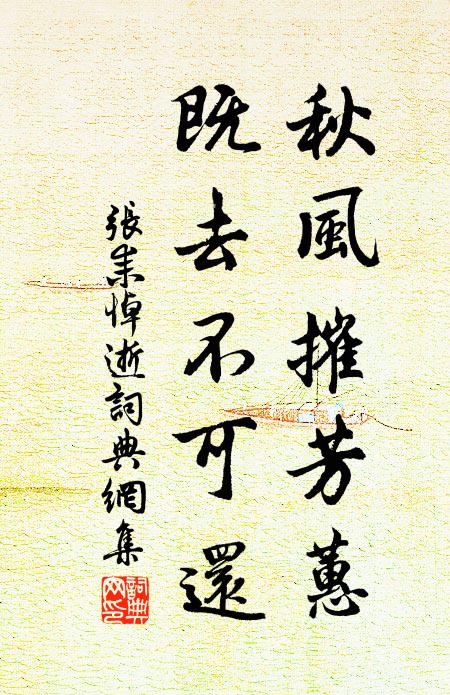 秋風摧芳蕙
既去不可還
張耒悼逝詞典網集
詞典網印